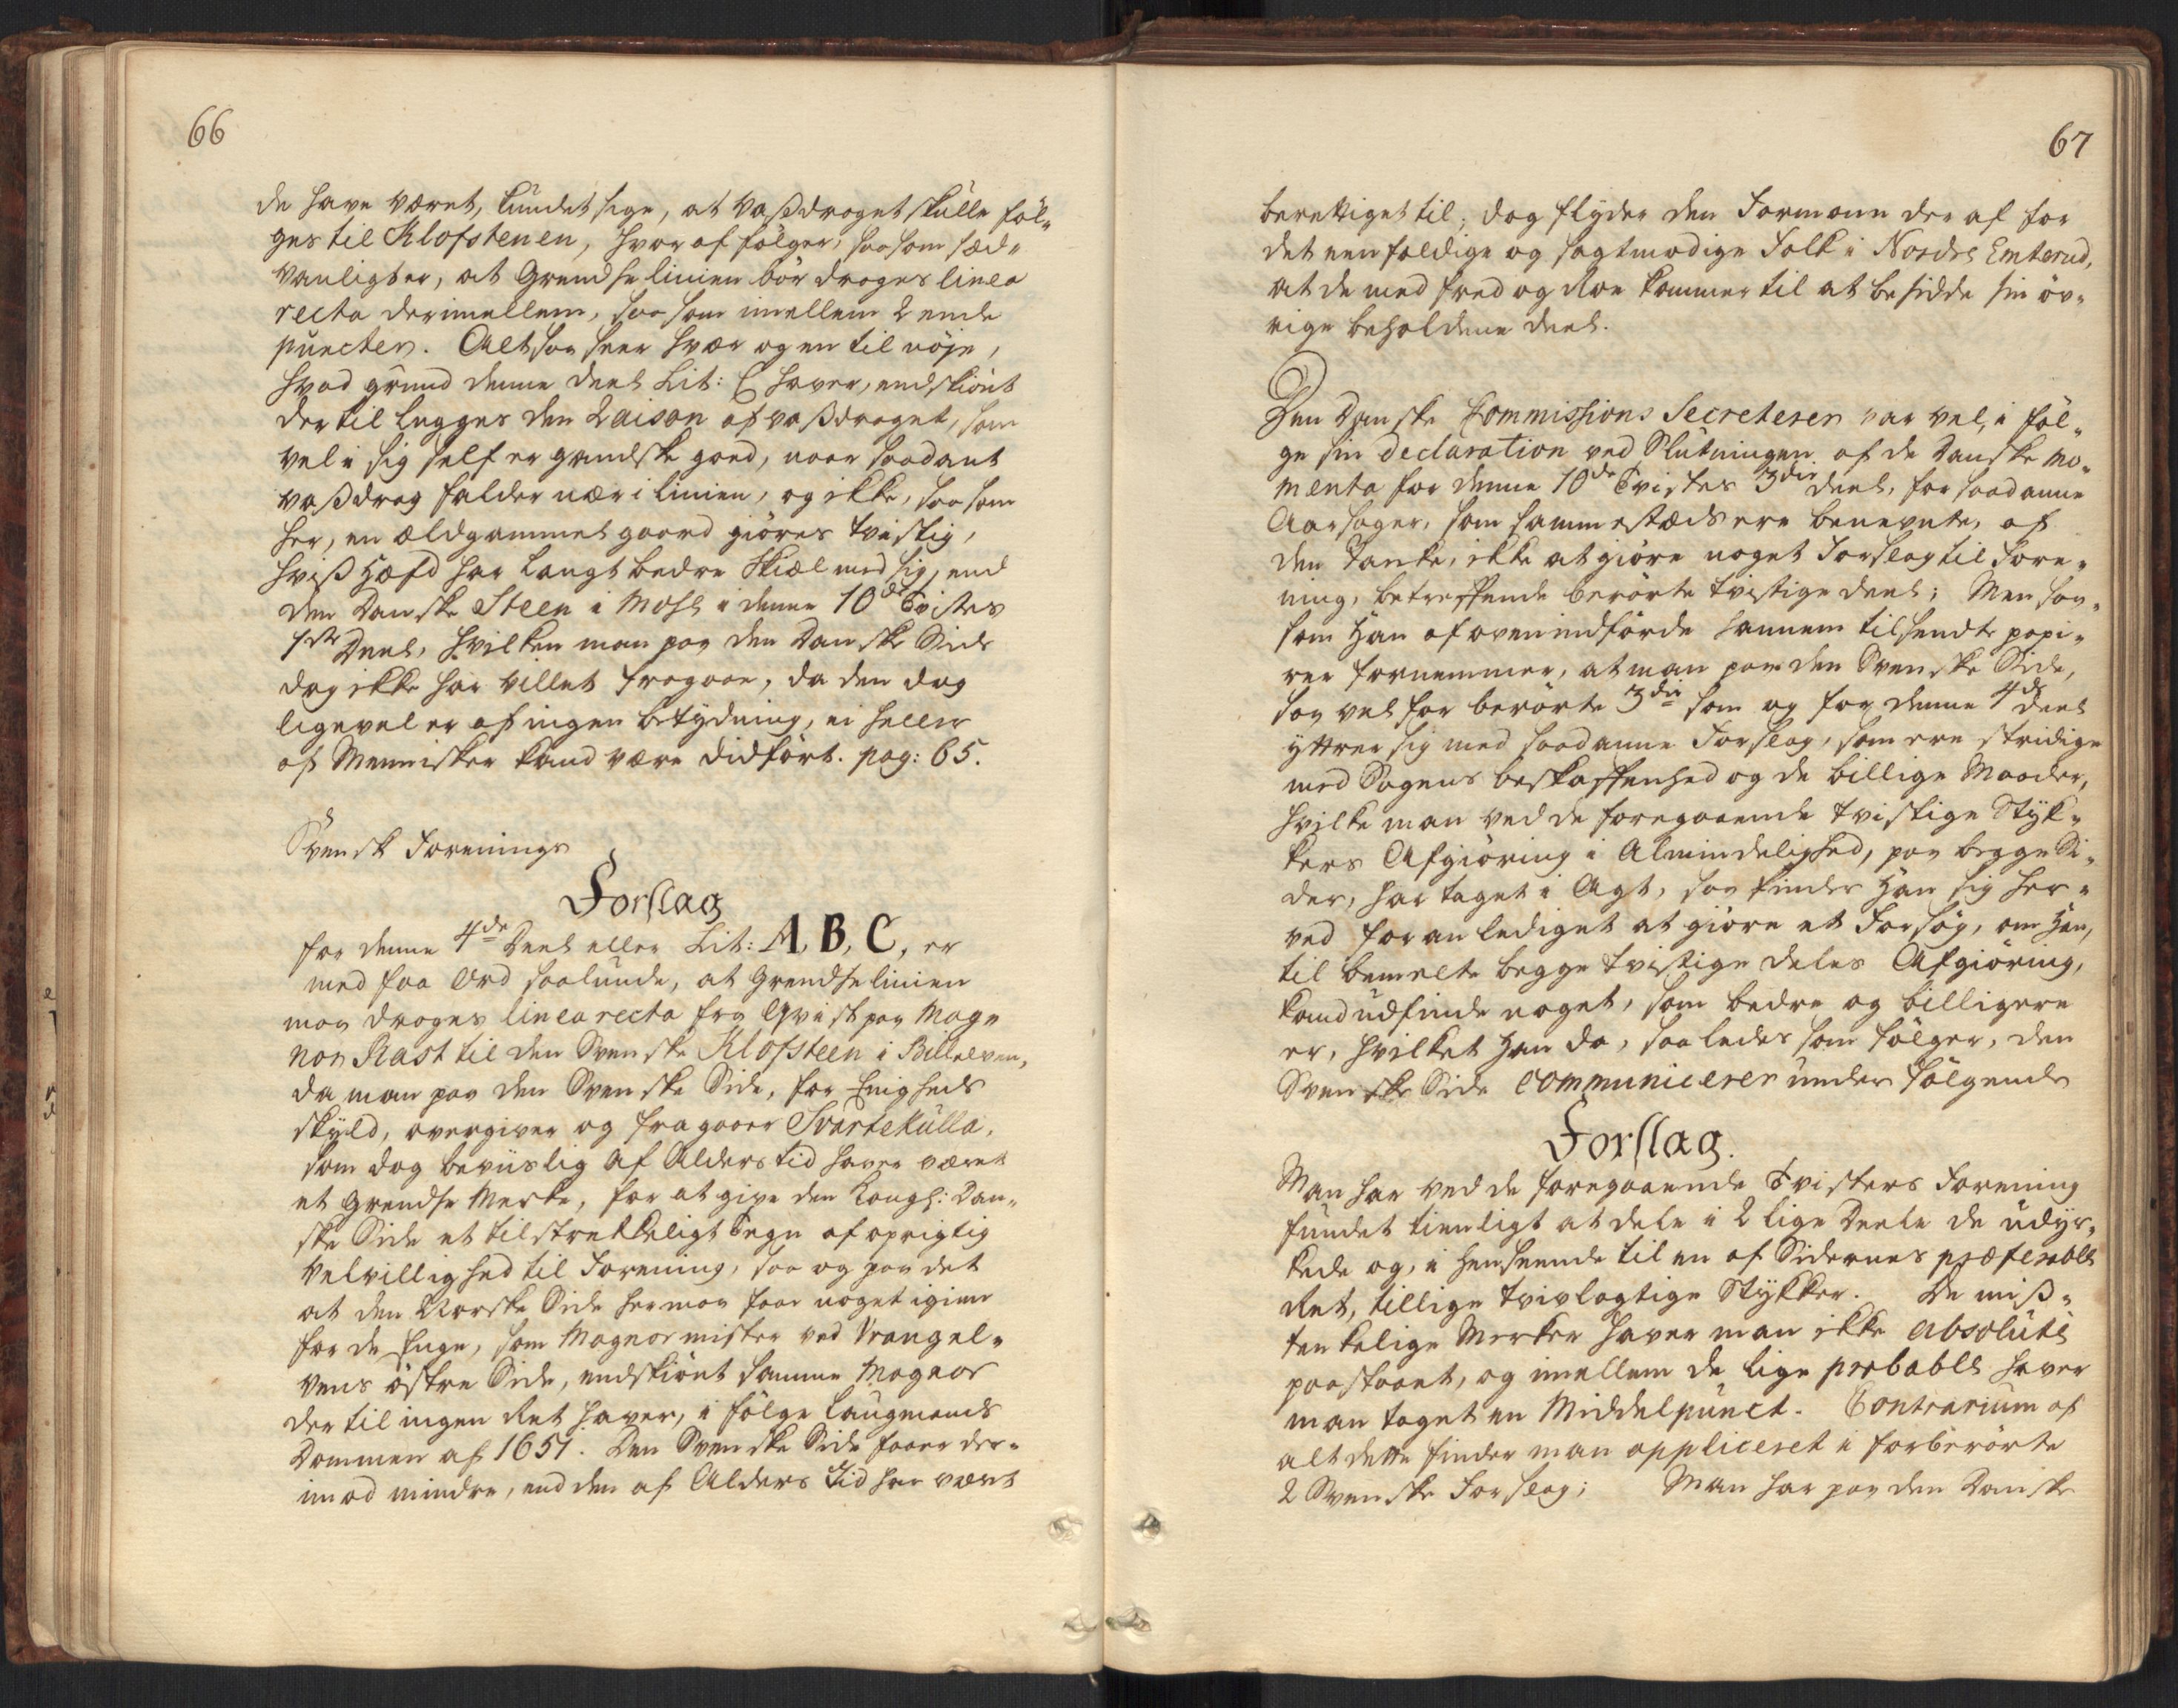 66
de have været, kundet sige, at Vaßdraget skulle föl-
ges til Klofstenen, hvor af fölger, saasom sæd-
vanligt er, at Grendse linien bör drages linea
recta derimellem, saa som imellem 2 ende
puncter. Altsaa seer hvær og en til nöje,
hvad grund denne deel Lit: C haver, endskiönt
der til legges den Raison af vaßdraget, som
vel i sig self er gandske goed, naar saadant
vaßdrag falder nær i linien, og ikke, saa som
her, en ældgammel gaard giöres tvistig,
hviß Hæfd har langt bedre Skiæl med sig, end
den Danske Steen i Mose i denne 10de Tvistes
1ste Deel, hvilken man paa den Danske Side
dog ikke har villet fragaae, da den dog
ligevel er af ingen betydning, ei heller
af Mennisker kand være didfört. pag: 65.
Svensk Forenings
Forslag
for denne 4de Deel eller Lit: A, B, C, er
med faa Ord saalunde, at Grendse linien
maa drages linea recta fra Qvist paa Mag-
nor Rast til den Svenske Klofsteen i Billelven,
da man paa den Svenske Side, for Enigheds
skyld, overgiver og fragaaer Svartekulla,
som dog beviislig af Alders tid haver været
et Grendse Merke, for at give den Kongl: Dan-
ske Side et tilstrekkeligt Tegn af oprigtig
Velvillighed til Forening, saa og paa det
at den Norske Side her maa faae noget igien
for de Enge, som Magnor mister ved Vrangel-
vens östre Side, endskiönt samme Magnor
der til ingen Ret haver, i fölge Laugmands
Dommen af 1651. Den Svenske Side faaer der-
imod mindre, end den af Alders tid har været
67
berettiget til; dog flyder den Formaun der af for
det eenfoldige og sagtmodige Folk i Nordre Emterud,
at de med fred og Roe kommer til at besidde sin öv-
rige beholdene deel.
Den Danske Commissions Secreterer var vel, i föl-
ge sin declaration ved Slutningen af de Danske mo-
menta for denne 10de Tvistes 3die deel, for saadanne
Aarsager, som sammestæds ere benevnte, af
den Tanke, ikke at giöre noget Forslag til Fore-
ning, betreffende berörte tvistige deel; Men saa-
som Han af ovenindförde hannem tilsendte papi-
rer fornemmer, at man paa den Svenske Side,
saa vel for berörte 3die som og for denne 4de deel
yttrer sig med saadanne Forslag, som ere stridige
med Sagens beskaffenhed og de billige Maader,
hvilke man ved de foregaaende tvistige Styk-
kers Afgiöring i Almindelighed, paa begge Si-
der, har taget i Agt, saa finder Han sig her-
ved foranlediget at giöre et Forsög, om Han,
til bemelte begge tvistige deles Afgiöring,
kand udfinde noget, som bedre og billigere
er, hvilket Han da, saaledes som fölger, den
Svenske Side communicerer under fölgende
Forslag.
Man har ved de foregaaende Tvisters Forening
fundet tienligt at dele i 2 lige Deele de udyr-
kede og, i henseende til en af Sidernes præferable
Ret, tillige tvivlagtige Stykker. De miß-
tenkelige Merker haver man ikke absolutè
paastaaet, og imellem de lige probable haver
man taget en Middelpunct. Contrarium af
alt dette finder man appliceret i forberörte
2 Svenske Forslag; Man har paa den Danske